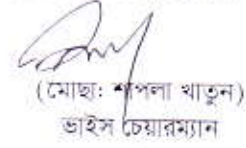 (মোছা: শাপলা খাতুন)
ভাইস চেয়ারম্যান